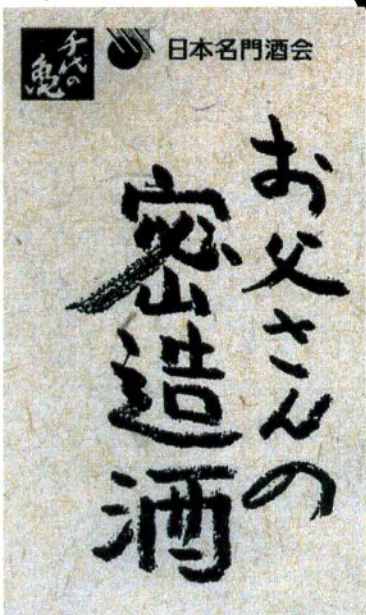 千代の亀
日本名門酒会
お父さんの
密造酒